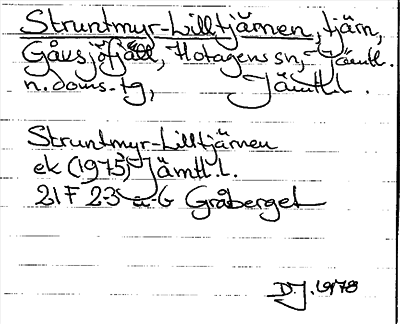 Struntmyr-Lilltjärnen, tjärn,
Gåxsjöfjäll, Hotagens sn, Jämtl.
n. doms-tg, Jämtl. l.
Struntmyr-Lilltjärnen
ek (1975) Jämtl. l.
21 F 2-3 a-b Gråberget
D.J. 1978